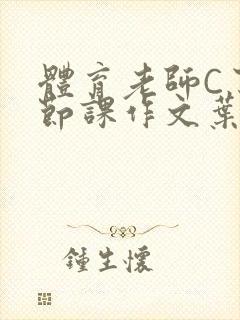 體育老師C
節課作文葉
鍾生懷